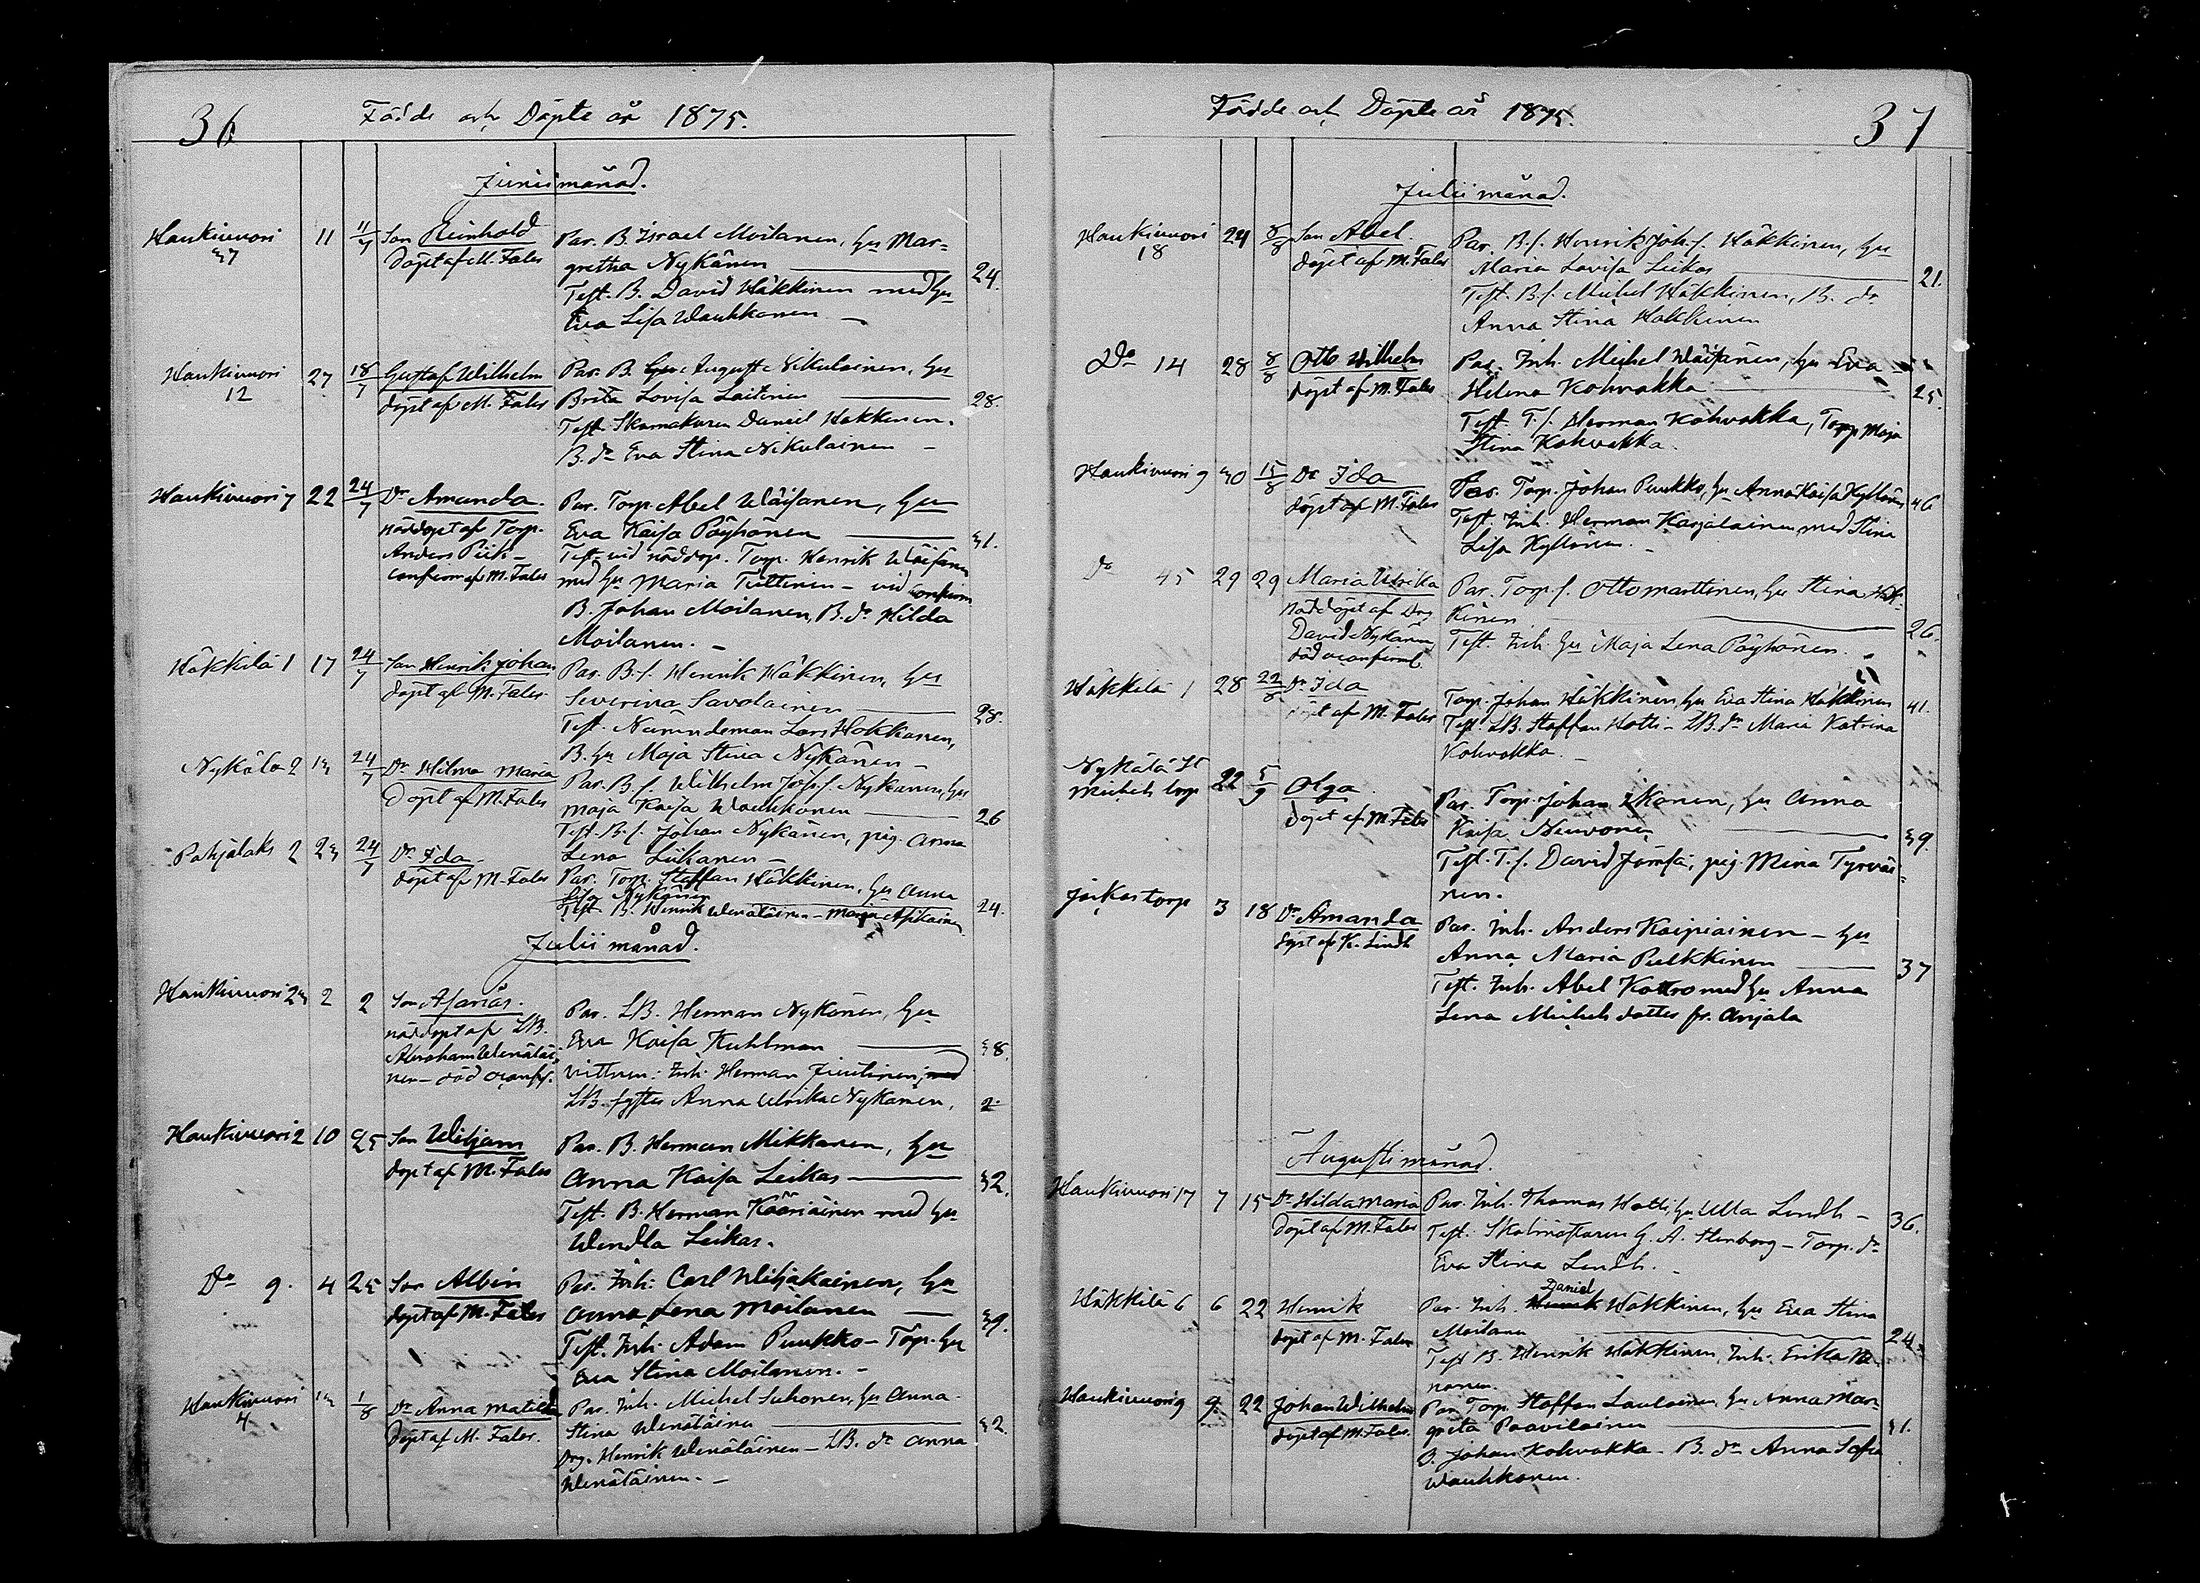 36
Födde och Döpte år 1875.
Junii månad.
Haukivuori
37
11
11/7
Son Reinhold
döpt af M. Fales
Par. B. Israel Moilanen, hu Mar-
gretha Nykänen
24.
Test. B. David Häkkinen med hu
Eva Lisa Wauhkonen
Haukivuori
12
27
18/7
Gustaf Wilhelm
döpt af M. Fales
Par. B. August Nikulainen, hu
Brita Lovisa Laitinen
28.
Test. Skomakaren Daniel Hokkanen.
B. dr Eva Stina Nikulainen
Haukivuori 7
22
24/7
Dr Amanda
nöddöpt af Torp.
Anders Piik
confirm af M. Fales
Par. Torp. Abel Wäisänen, hu
Eva Kaisa Pöyhönen
31.
Test. vid nöddop. Torp. Henrik Wäisänen
med hu Maria Tuttinen - vid confirm
B. Johan Moilanen, B. dr Hilda
Moilanen.
Häkkilä 1
17
24/7
Son Henrik Johan
döpt af M. Fales
Par. B.s. Henrik Häkkinen, hu
Severina Savolainen
28.
Test. Nämndeman Lars Hokkanen,
B. hu Maja Stina Nykänen
Nykälä 2
13
24/7
Dr Hilma Maria
döpt af M. Fales
Par. B.s. Wilhelm Jos.s. Nykänen, hu
Maja Kaisa Wauhkonen
26
Test. B.s. Johan Nykänen, pig. Anna
Lena Liikanen
Pohjalaks 2
23
24/7
Dr Ida
döpt af M. Fales
Par. Torp. Staffan Häkkinen, hu Anna
Lisa Nykänen
24.
Test. B. Henrik Wenäläinen - Maria Asikainen
Julii månad.
Haukivuori 23
2
2
Son Asarias.
nöddöpt af LB.
Abraham Wenäläi-
nen - död oconfr.
Par. LB. Herman Nykänen, hu
Eva Kaisa Kuhlman
38.
vittnen: Inh. Herman Juutinen, med
LB. syster Anna Ulrika Nykänen.
2
Haukivuori 2
10
25
Son Wiljam
döpt af M. Fales
Par. B. Herman Mikkanen, hu
Anna Kaisa Leikas
32.
Test. B. Herman Kääriäinen med hu
Wendla Leikas.
Do 9.
4
25
Son Albin
döpt af M. Fales
Par. Inh. Carl Wiljakainen, hu
Anna Lena Moilanen
39.
Test. Inh. Adam Puukko - Torp. hu
Eva Stina Moilanen.
Haukivuori
4
13
1/8
Dr Anna Matilda
Döpt af M. Fales.
Par. Inh. Michel Suhonen, hu Anna
Stina Wenäläinen
32.
Drg. Henrik Wenäläinen - LB. dr Anna
Wenäläinen.
37
Födde och Döpte år 1875.
Julii månad.
Haukivuori
18
24
8/8
Son Abel.
döpt af M. Fales
Par. B.s. Henrik Joh.s. Häkkinen, hu
Maria Lovisa Leikas
21.
Test. B.s. Michel Häkkinen, B. dr
Anna Stina Häkkinen
Do 14
28
8/8
Otto Wilhelm
döpt af M. Fales
Par. Inh. Michel Wäisänen, hu Eva
Helena Kohvakka
25.
Test. T.s. Herman Kohvakka, Torp. Maja
Stina Kohvakka.
Haukivuori 9
30
15/8
Dr Ida
döpt af M. Fales
Par. Torp. Johan Puukko, hu Anna Kaisa Kyllönen
46
Test. Inh. Herman Karjalainen, med Stina
Lisa Kyllönen.
Do 45
29
29
Maria Ulrika
nöddöpt af Drg
David Nykänen
död oconfirm
Par. Torp.s. Otto Marttinen, hu Stina Häk-
kinen
26.
Test. Inh. hu Maja Lena Pöyhönen.
Häkkilä 1
28
22/8
Dr Ida
döpt af M. Fales
Torp. Johan Häkkinen, hu Eva Stina Häkkinen
41.
Test. LB. Staffan Hotti - LB. dr Maria Katrina
Kohvakka
Nykälä St
Michels torp
22
5/9
Olga
döpt af M. Fales
Par. Torp. Johan Ikonen, hu Anna
Kaisa Neuvonen
39.
Test. T.s. David Jämsä, pig. Mina Tyrväi-
nen.
Joikas torp
3
18
Dr Amanda
döpt af K. Lindh
Par. Inh. Anders Kaipiainen - hu
Anna Maria Pulkkinen
37
Test. Inh. Abel Kottro med hu Anna
Lena Michels dotter fr. Anjala
Augusti månad.
Haukivuori 17
7
15
Dr Hilda Maria
döpt af M. Fales
Par. Inh. Thomas Hotti, hu Ulla Lindh
36.
Test. Skolmästaren G. A. Stenborg - Torp. dr
Eva Stina Lindh.
Häkkilä 6
6
22
Henrik
döpt af M. Fales
Daniel
Par. Inh. Henrik Häkkinen, hu Eva Stina
Moilanen
24.
Test. B. Henrik Häkkinen, Inh. Erika
nonen.
Haukivuori 9
9.
22
Johan Wilhelm
döpt af M. Fales.
Par. Torp. Staffan Laulainen, hu Anna Mar-
greta Paavilainen
31.
B. Johan Kohvakka - B. dr Anna Sofia
Wauhkonen.